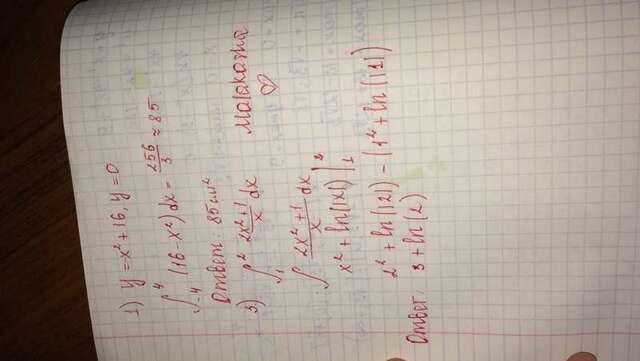 1) y = x² + 16, y = 0
∫₋₄⁴ (16 - x²) dx = 256/3 ≈ 85
Ответ: 85 см²
3) ∫₁² 2x²+1/x dx
♡
∫ 2x²+1/x dx
x² + ln(|x|) |₁²
2² + ln(|2|) - (1² + ln(|1|))
Ответ: 3 + ln(2)